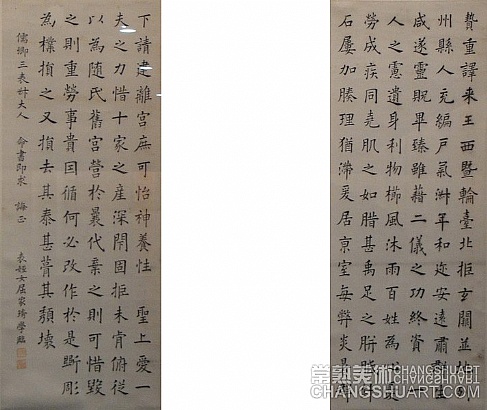 贄重譯来王西暨輪臺北拒玄闕並地
州縣人充編戶氣淑年和迩安遠肅群生
咸遂靈貺畢臻雖藉二儀之功終資一
人之慮遺身利物櫛風沐雨百姓為心憂
勞成疾同堯肌之如腊甚禹足之胼胝
石屢加腠理猶滯爰居京室每弊炎暑
下請建離宮庶可怡神養性 聖上愛一
夫之力惜十家之產深閉固拒未肯俯從
以為随氏舊宮營於曩代棄之則可惜毀
之則重勞事貴因循何必改作於是斲彫
為樸損之又損去其泰甚葺其頹壞
儒卿三表叔大人 命書即求 誨正
表姪女屈家琦學臨
常熟美術 CHANGSHUART
CHANGSHUART.COM